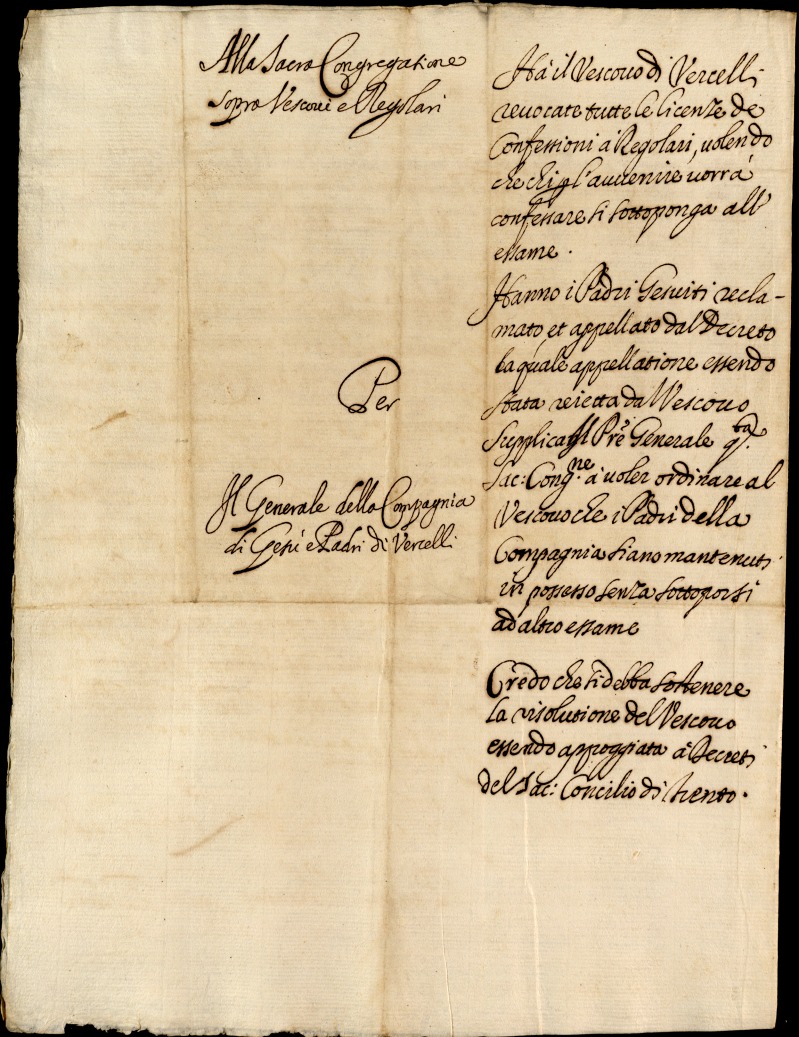 Alla Sacra Congregatione
sopra Vescovi e Regolari
Per
Il Generale della Compagnia
di Gesù e Padri di Vercelli
Hà il Vescouo di Vercelli
reuocate tutte le licenze de
Confessioni à Regolari, uolendo
che chi p l'auuenire uorrà
confessare si sottoponga all'
essame.
Hanno i Padri Gesuiti recla-
mato, et appellato dal Decreto
la quale appellatione essendo
stata reietta dal Vescouo
supplica Il Prē Generale q.ta
Sac: Cong.ne à uoler ordinare al
Vescouo che i Padri della
Compagnia siano mantenuti
in possesso senza sottoporsi
ad altro essame
Credo che si debba sostenere
la risolutione del Vescouo
essendo appoggiata à Decreti
del Sac: Concilio di Trento.